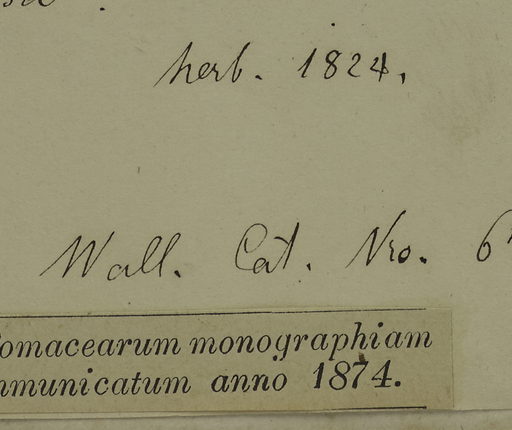 herb. 1824,
Wall. Cat. Nro. 6
omacearum monographiam
municatum anno 1874.